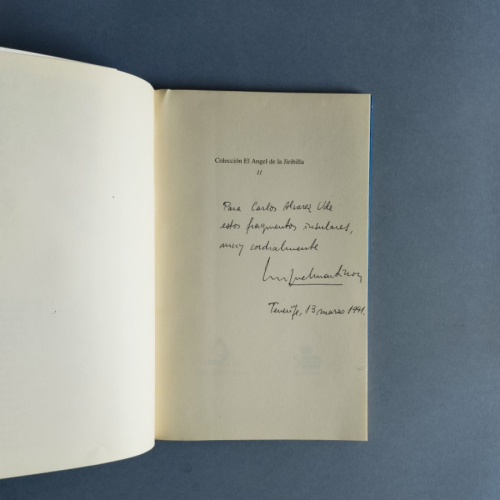 Colección El Angel de la Jiribilla
11
Para Carlos Alvarez Ude
estos fragmentos insulares,
muy cordialmente
Tenerife, 13 marzo 1991.